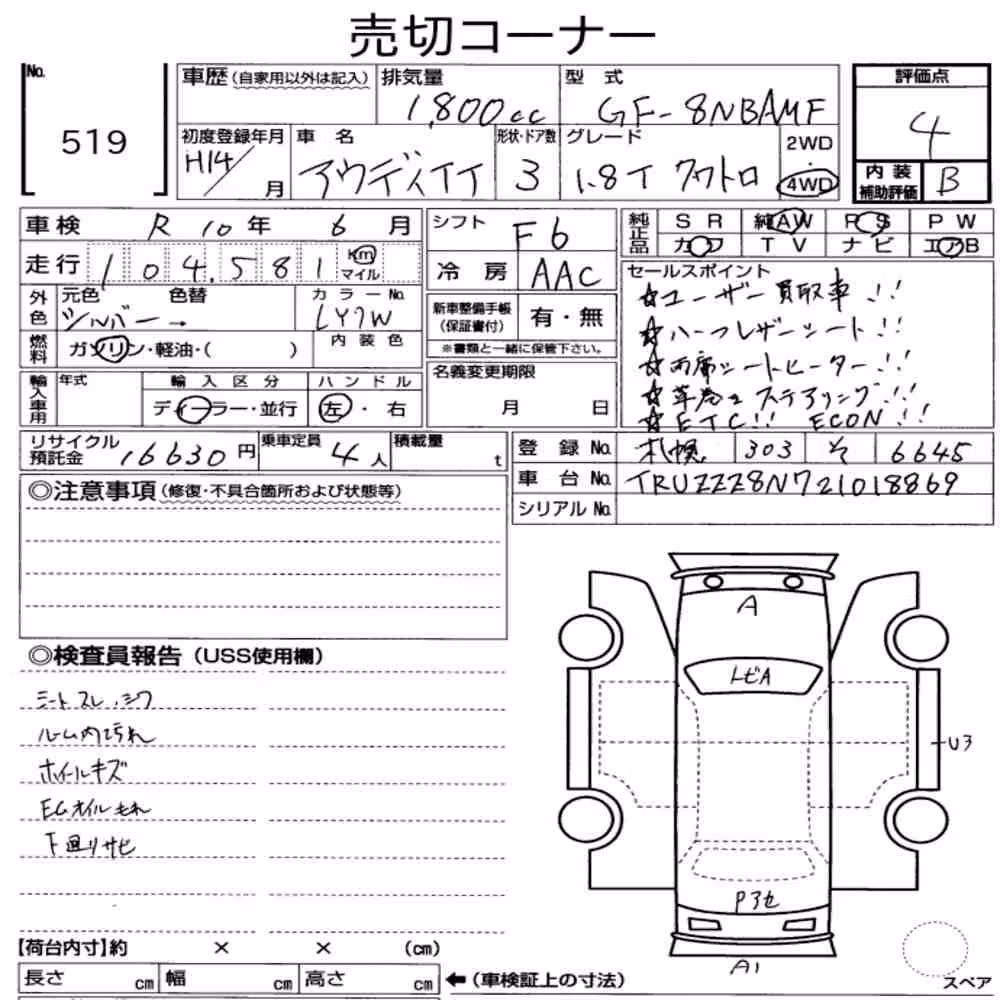 売切コーナー
No.
519
車歴(自家用以外は記入)
排気量
1,800cc
型 式
GF-8NBAMF
評価点
4
内装補助評価 B
初度登録年月
H14/ 月
車 名
アウディTT
形状・ドア数
3
グレード
1.8T クワトロ
2WD
・
4WD
車検 R 10年 6月
走行 104,581 Km マイル
外色 元色 色替
シルバー→
カラーNo.
LY7W
燃料 ガソリン・軽油・( )
内 装 色
輸入車用 年式
輸 入 区 分
ディーラー・並行
ハ ン ド ル
左・右
シフト F6
冷 房 AAC
新車整備手帳(保証書付) 有・無
※書類と一緒に保管下さい。
名義変更期限
月 日
純正品 S R 純AW R S P W
カワ T V ナビ エアB
セールスポイント
☆ユーザー買取車!!
☆ハーフレザーシート!!
☆両席シートヒーター!!
☆革巻きステアリング!!
☆ETC!! ECON!!
リサイクル預託金 16630円
乗車定員 4人
積載量 t
登 録 No. 札幌 303 そ 6645
車 台 No. TRUZZZ8N721018869
シリアル No.
◎注意事項(修復・不具合箇所および状態等)
◎検査員報告(USS使用欄)
シートスレ、シワ
ルーム内汚れ
ホイールキズ
EGオイルもれ
下廻りサビ
A
トビA
U3
Pアセ
A1
スペア
【荷台内寸】約 × × (cm)
長さ cm 幅 cm 高さ cm ←(車検証上の寸法)